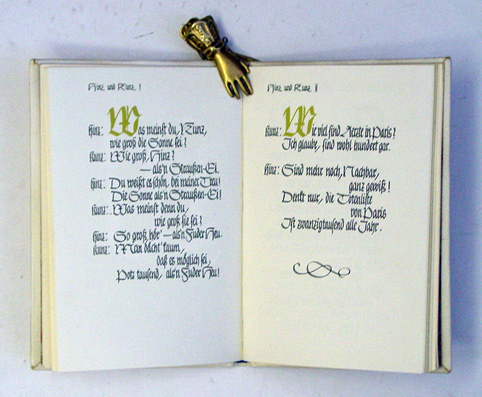 Hinz und Kunz I
Was meinst du, Kunz,
wie groß die Sonne sei?
Kunz: Wie groß, Hinz?
— als'n Straußen-Ei.
Hinz: Du weißt es schön, bei meiner Treu!
Die Sonne als'n Straußen-Ei!
Kunz: Was meinst denn du,
wie groß sie sei?
Hinz: So groß, hör' — als'n Fuder Heu.
Kunz: Man dächt' kaum,
daß es möglich sei,
Potz tausend, als'n Fuder Heu!
Hinz und Kunz II
Kunz: Wie viel sind Aerzte in Paris?
Ich glaube, sind wohl hundert gar.
Hinz: Sind mehr noch, Nachbar,
ganz gewiß!
Denkt nur, die Totenliste
von Paris
Ist zwanzigtausend alle Jahr.